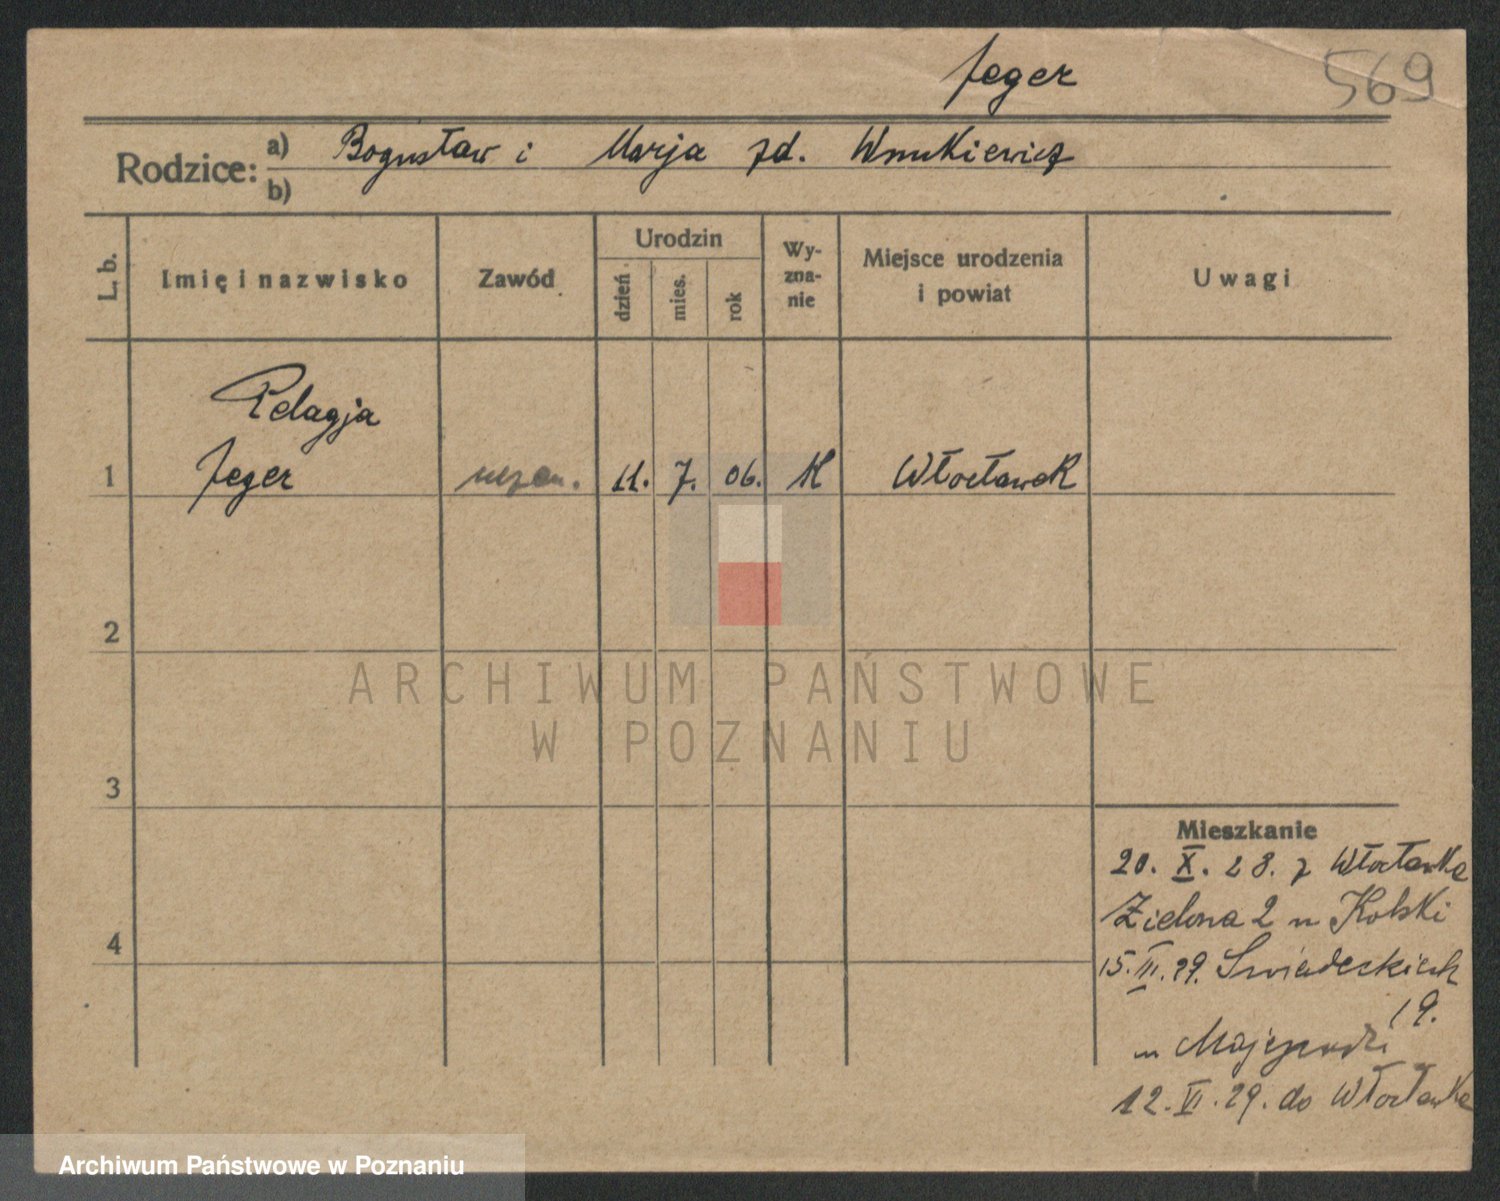 Jeger
569
Rodzice:
a) Bogusław i Marja zd. Wnukiewicz
b)
L. b.
Imię i nazwisko
Zawód
Urodzin
dzień
mies.
rok
Wy-
zna-
nie
Miejsce urodzenia
i powiat
Uwagi
Pelagja
1 Jeger 11. 7. 06. K Włocławek
2
3
4
ARCHIWUM PAŃSTWOWE
W POZNANIU
Mieszkanie
20. X. 28. z Włocławka
Zielona 2 u Kolski
15. III. 29. Śniadeckich
19.
u
12. VI. 29. do Włocławka
Archiwum Państwowe w Poznaniu